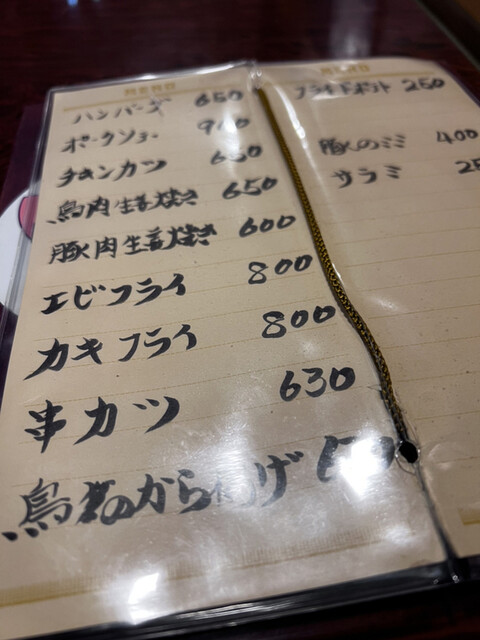 MENU
ハンバーグ 650
ポークソテー
チキンカツ 650
鳥肉生姜焼き 650
豚肉生姜焼き 600
エビフライ 800
カキフライ 800
串カツ 630
鳥のからげ
MENU
フライドポテト 250
豚のミミ 400
サラミ